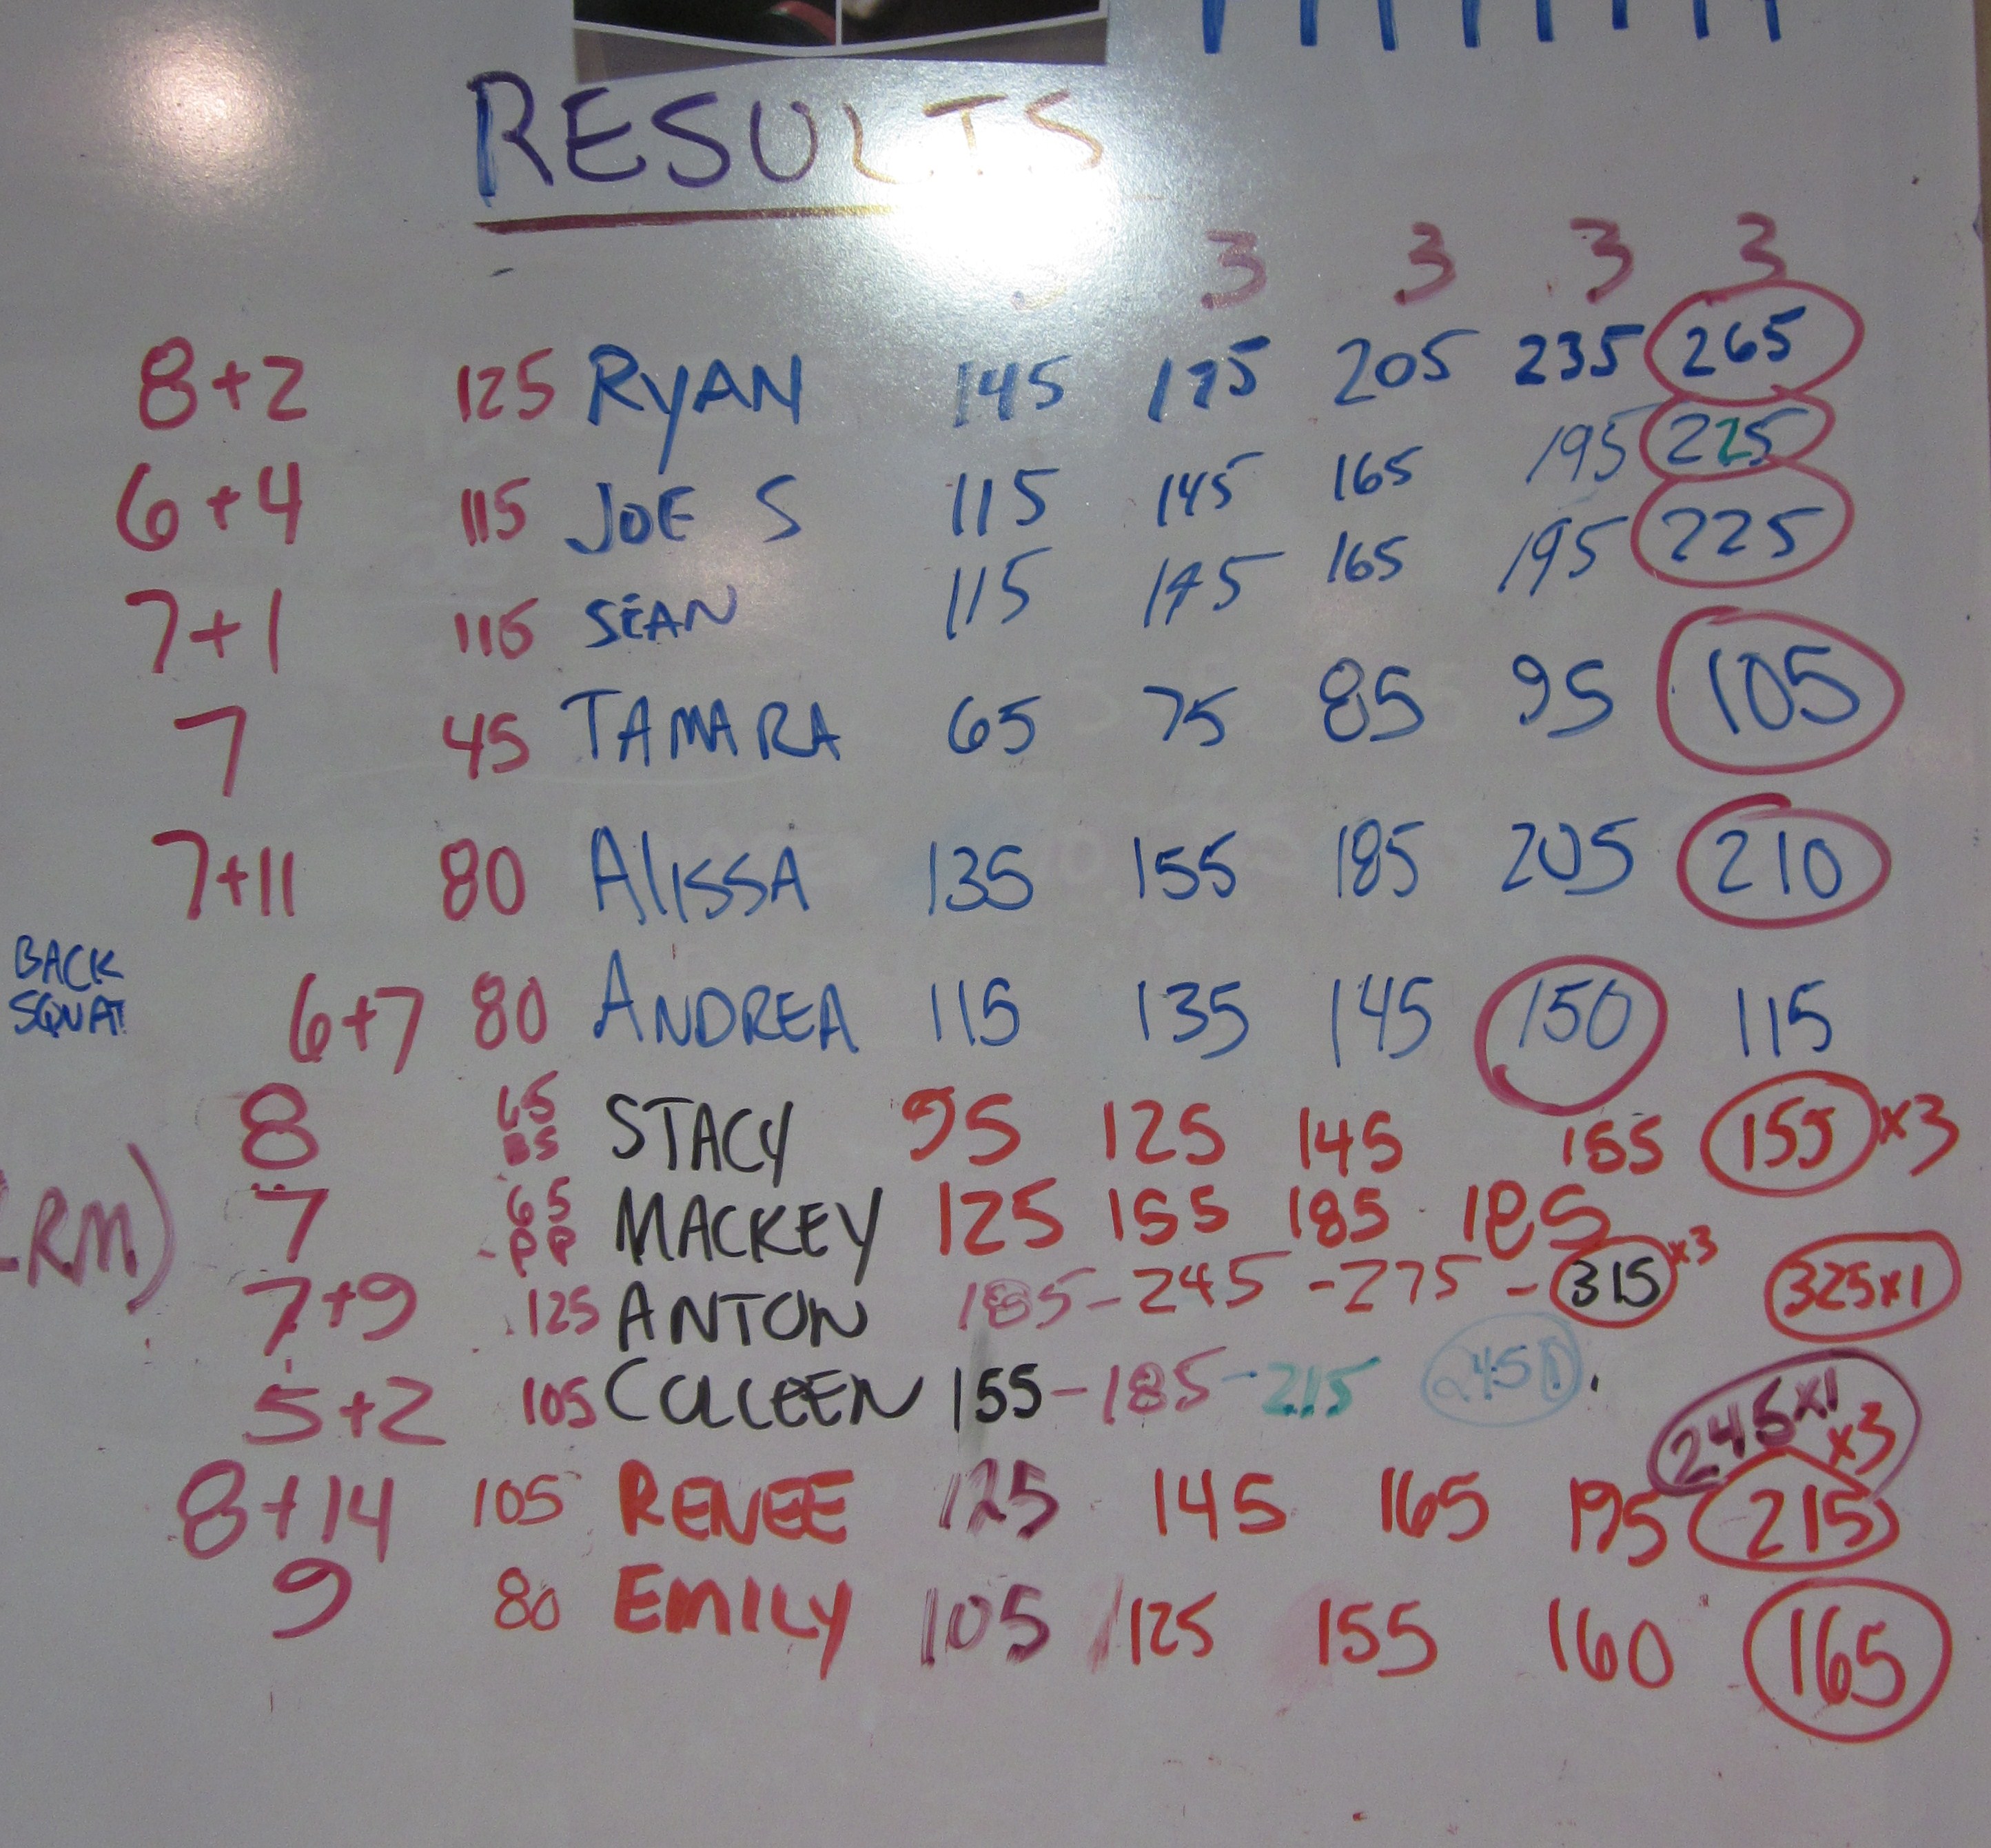 RESULTS
3 3 3 3
8+2 125 RYAN 145 175 205 235 265
6+4 115 JOE S 115 145 165 195 225
7+1 115 SEAN 115 145 165 195 225
7 45 TAMARA 65 75 85 95 105
7+11 80 ALISSA 135 155 185 205 210
BACK
SQUAT
6+7 80 ANDREA 115 135 145 150 115
8 65 STACY 95 125 145 155 155 x3
RM)
7 65 PP MACKEY 125 155 185 185
7+9 125 ANTON 185-245-275-315 x3 325x1
5+2 105 COLLEEN 155-185-215 245x1
8+14 105 RENEE 125 145 165 195 215 x3
9 80 EMILY 105 125 155 160 165